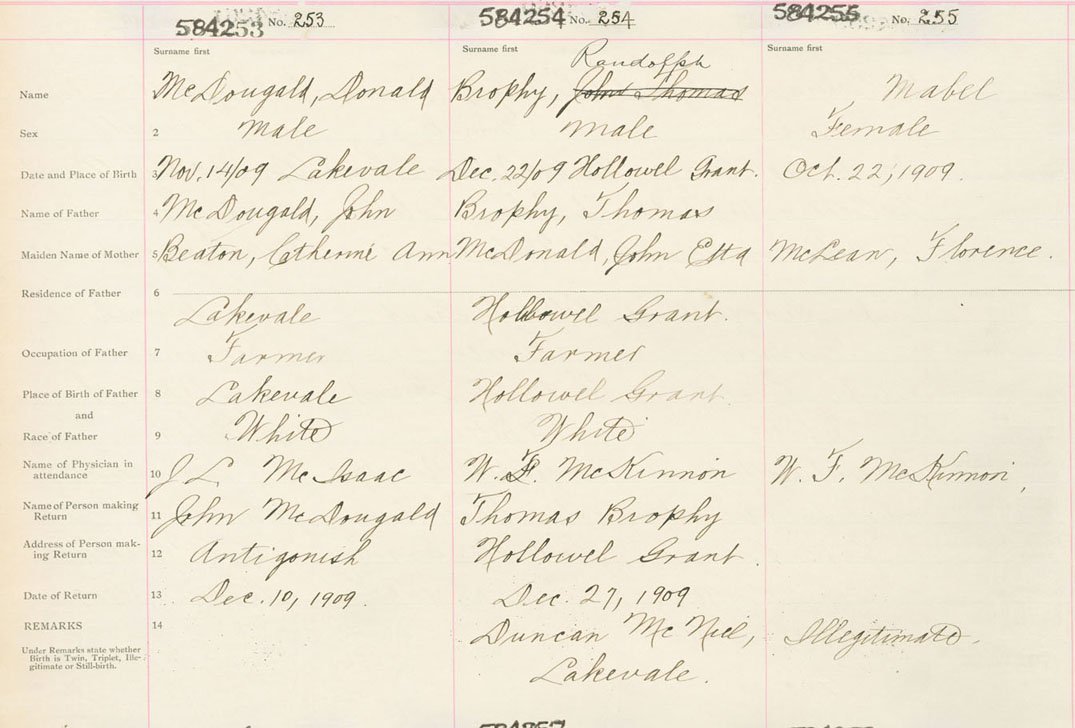 584253 No. 253 584254 No. 254 584255 No. 255
Surname first Surname first Surname first
Randolph
Name McDougald, Donald Brophy, John Thomas Mabel
Sex 2 Male Male Female
Date and Place of Birth 3 Nov. 14/09 Lakevale Dec. 22/09 Hollowel Grant. Oct. 22, 1909.
Name of Father 4 McDougald, John Brophy, Thomas
Maiden Name of Mother 5 Beaton, Catherine Ann McDonald, John Etta McLean, Florence.
Residence of Father 6
Lakevale Hollowel Grant.
Occupation of Father 7 Farmer Farmer
Place of Birth of Father 8 Lakevale Hollowel Grant
and
Race of Father 9 White White
Name of Physician in
attendance 10 J L McIsaac W. F. McKinnon W. F. McKinnon,
Name of Person making
Return 11 John McDougald Thomas Brophy
Address of Person mak-
ing Return 12 Antigonish Hollowel Grant.
Date of Return 13 Dec. 10, 1909. Dec. 27, 1909
REMARKS 14 Duncan McNiel, Illegitimate.
Under Remarks state whether
Birth is Twin, Triplet, Ille-
gitimate or Still-birth. Lakevale.
584257